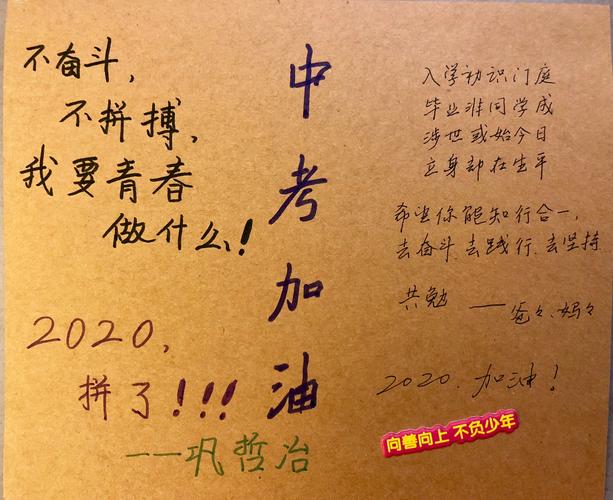 不奋斗，
不拼搏，
我要青春
做什么！
2020，
拼了！！！
——巩哲冶
中考加油
入学初识门庭
毕业非同学成
涉世或始今日
立身却在生平
希望你能知行合一，
去奋斗、去践行、去坚持
共勉 ——爸々、妈々
2020、加油！
向善向上 不负少年